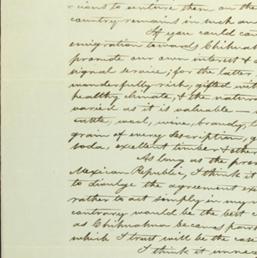 rious to venture then on the
country remains in such an
If you could can
emigration towards Chihuahu
promote our own interest & a
signal service; for the latter
wonderfully rich, gifted wit
healthy climate, & the natura
varied as it is valuable
cattle, wool, wine, brandy,
grain of every description, g
soda, excellent timber & othe
As long as the pres
Mexican Republic, I think it
to divulge the agreement ex
rather to act simply in my
contrary would be the best c
as Chihuahua becomes part
which I trust will be the case
I think it unnec